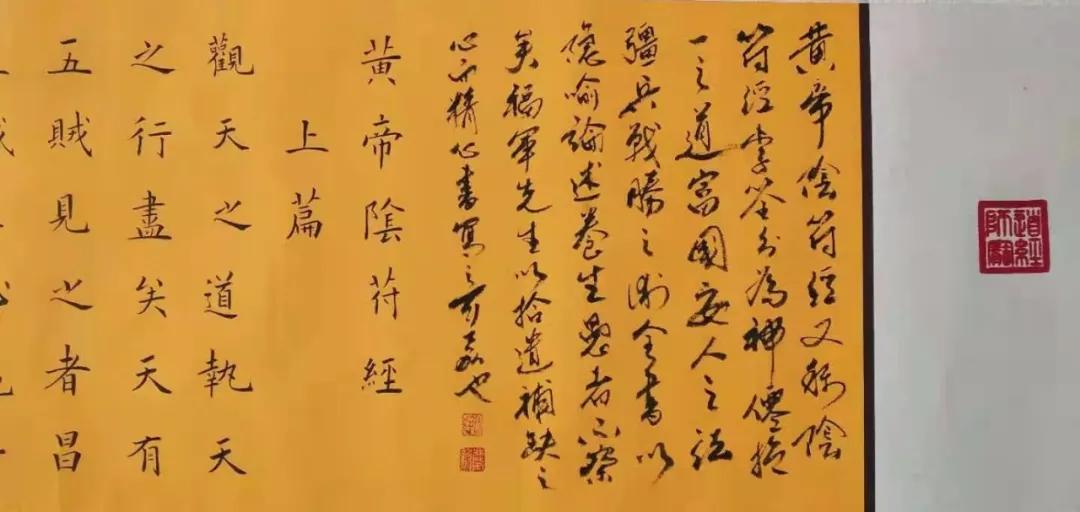 道經師寶
黄帝陰符經又稱陰
符經李筌分為神僊抱
一之道富國安人之法
彊兵戰勝之術全書以
隱喻論述養生愚者不察
矣福軍先生以拾遺補缺之
心而精心書寫之可嘉也
黃帝陰苻經
上篇
觀天之道執天
之行盡矣天有
五賊見之者昌